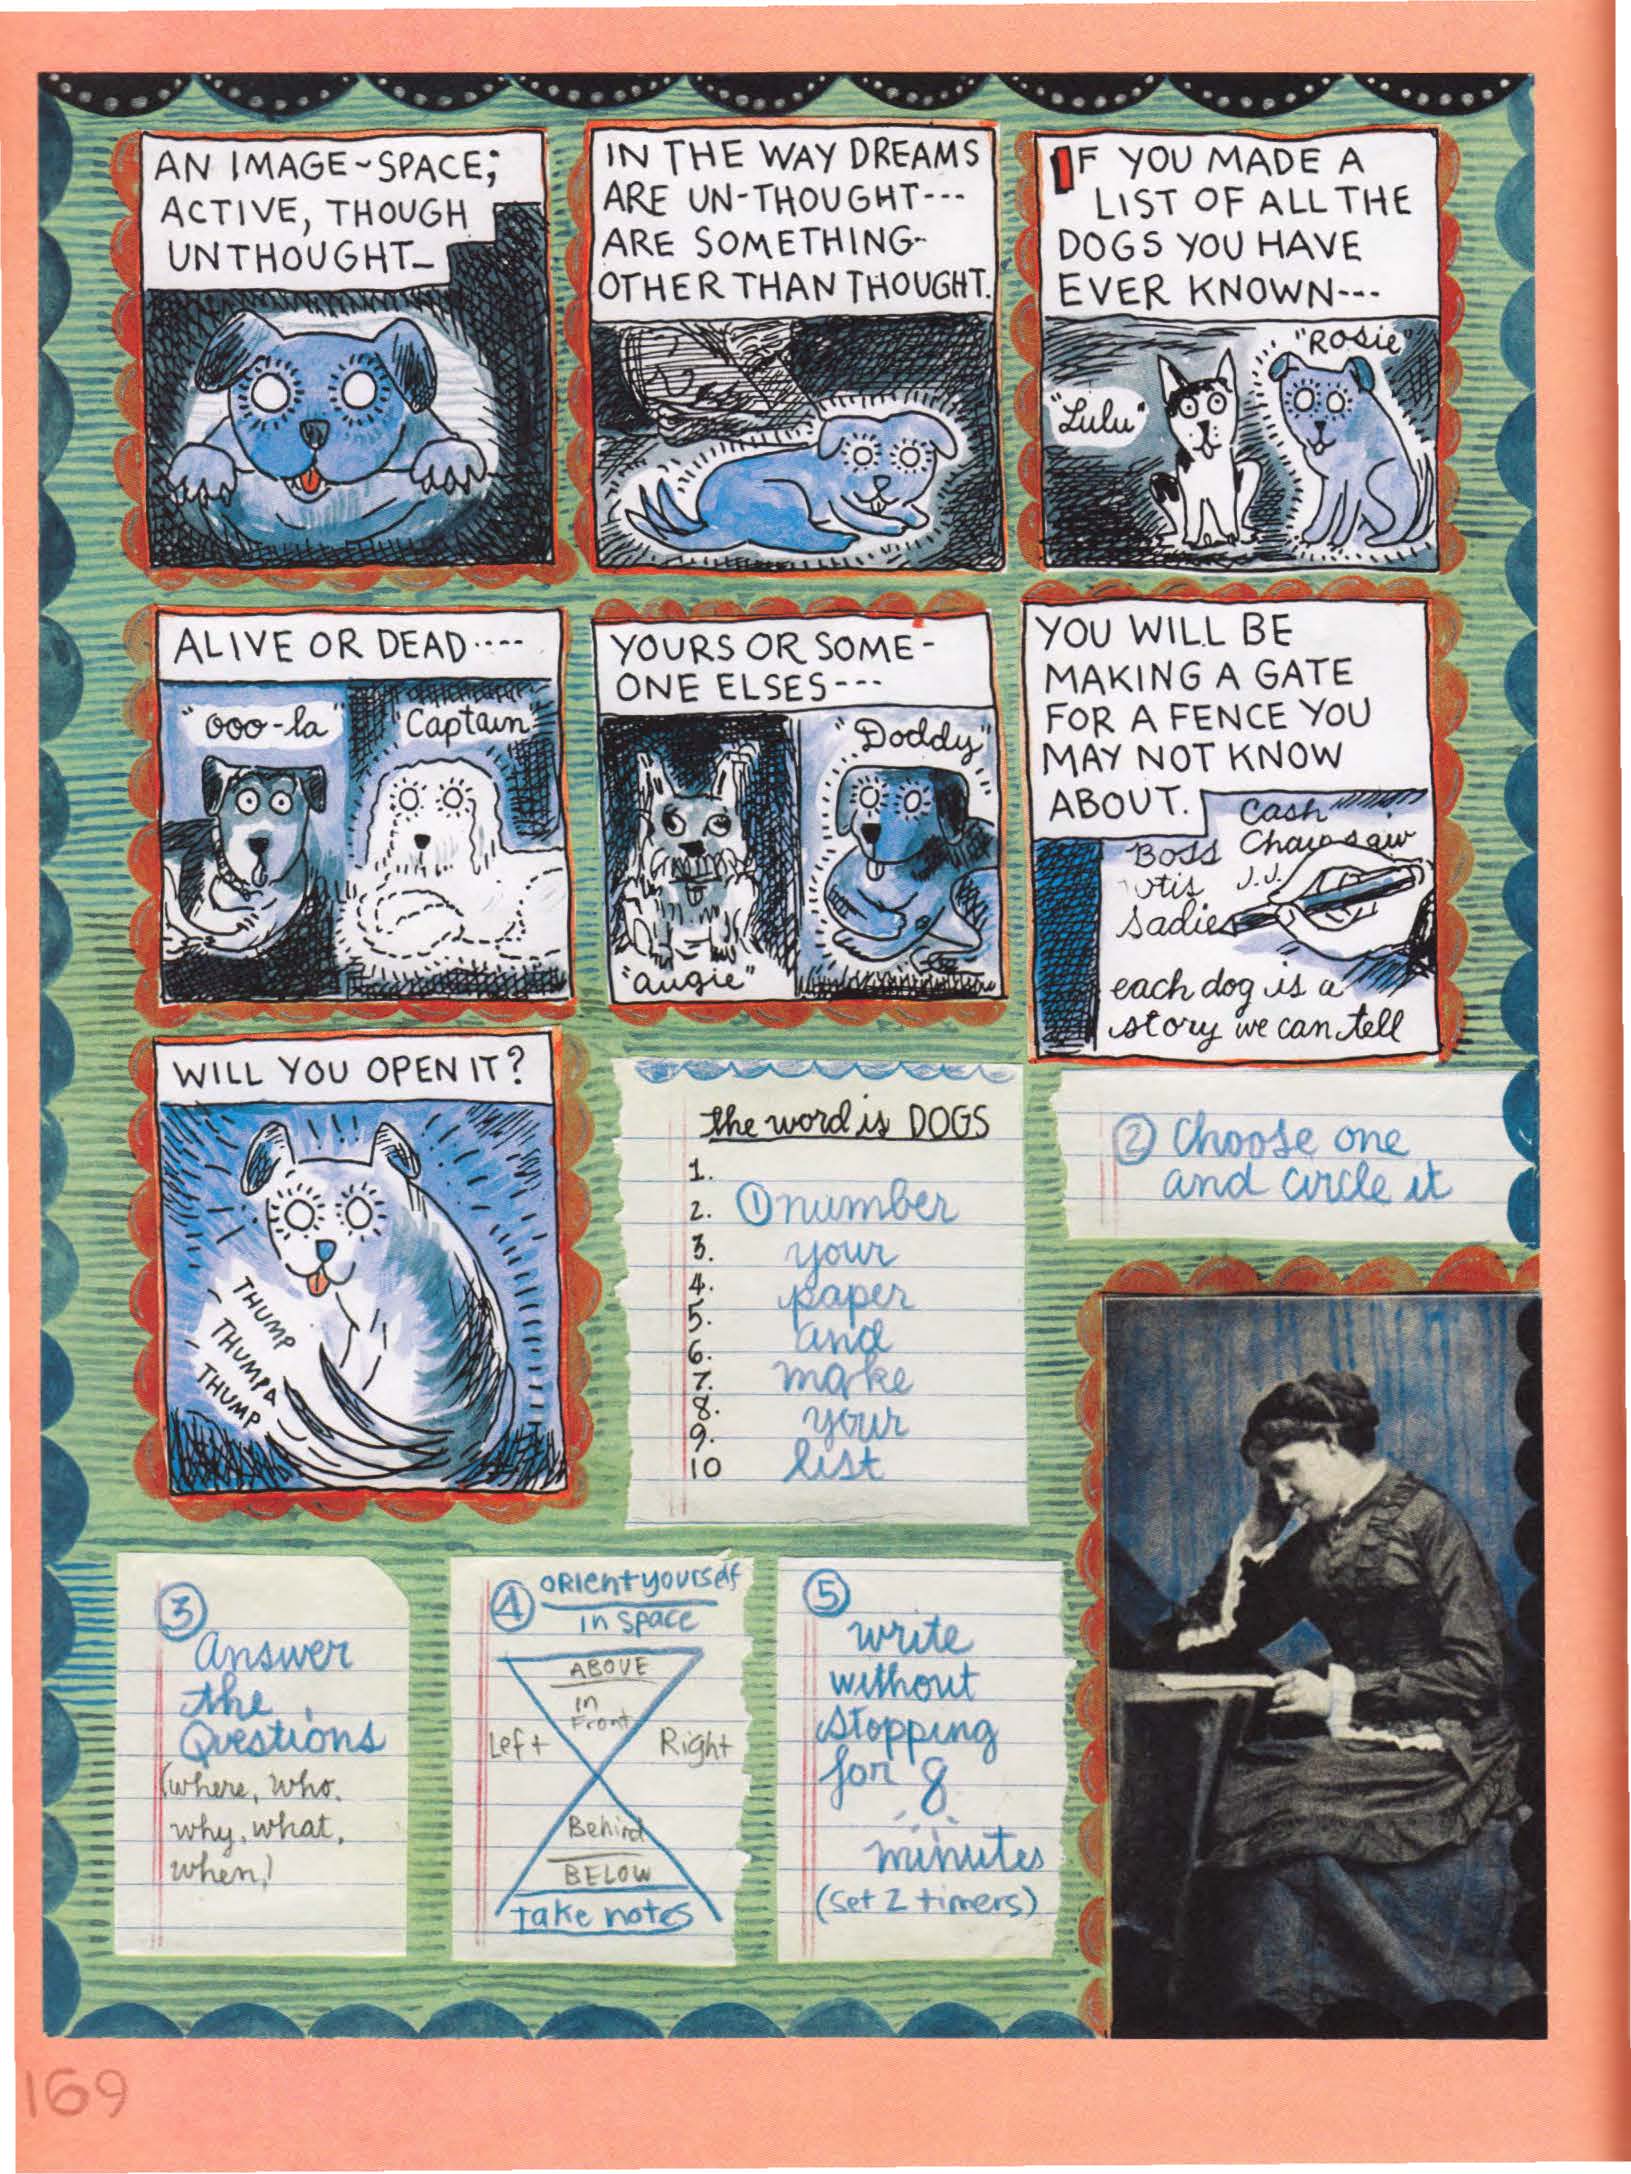 AN IMAGE~SPACE;
ACTIVE, THOUGH
UNTHOUGHT—
IN THE WAY DREAMS
ARE UN-THOUGHT---
ARE SOMETHING-
OTHER THAN THOUGHT.
IF YOU MADE A
LIST OF ALL THE
DOGS YOU HAVE
EVER KNOWN---
"Rosie"
"Lulu"
ALIVE OR DEAD ----
"ooo-la"
"Captain"
YOURS OR SOME-
ONE ELSES---
"Doddy"
"augie"
YOU WILL BE
MAKING A GATE
FOR A FENCE YOU
MAY NOT KNOW
ABOUT.
Cash
Boss Chainsaw
Otis J.J.
Sadie
each dog is a
story we can tell
WILL YOU OPEN IT?
THUMP
THUMPA
THUMP
the word is DOGS
1.
2. ① number
3. your
4. paper
5. and
6.
7. make
8. your
9.
10 list
② Choose one
and circle it
③
Answer
the
Questions
(where, who,
why, what,
when,)
④ ORIENT yourself
in space
ABOVE
in
Front
Left Right
Behind
BELOW
Take notes
⑤
write
without
stopping
for 8
minutes
(set 2 timers)
169